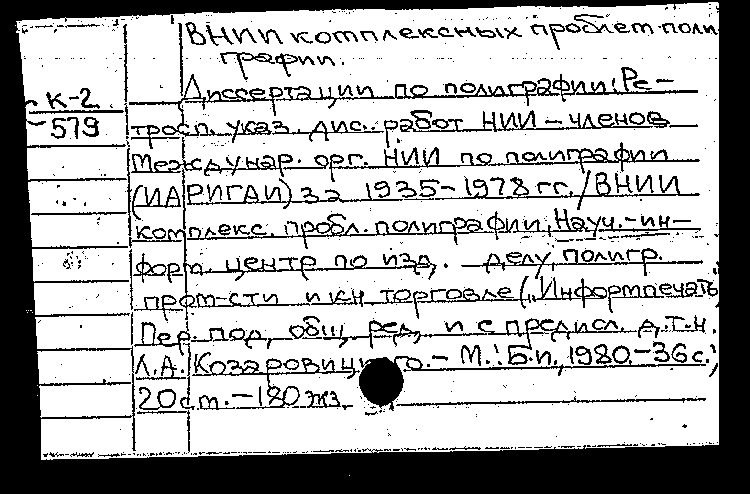 ВНИИ комплексных проблем поли
графии.
Диссертации по полиграфии: Ре-
К-2
579
тросп. указ. дис. работ НИИ - членов
Междунар. орг. НИИ по полиграфии
(ИАРИГАИ) за 1935-1978 гг. / ВНИИ
комплекс. пробл. полиграфии, Науч.-ин-
форм. центр по изд. делу, полигр.
пром-сти и кн. торговле („Информпечать"
Пер. под общ. ред. и с предисл. д.т.н.
Л.А. Козаровицкого. - М.: Б.и., 1980. - 36 с.;
20 см. - 180 экз.